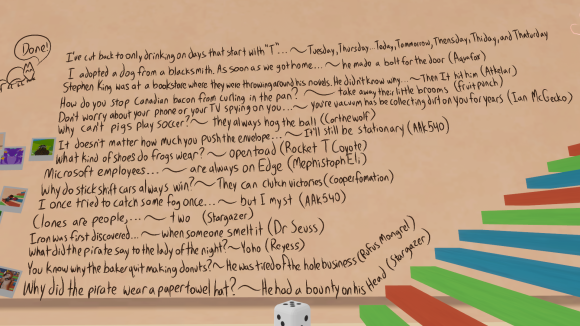 Done!
I've cut back to only drinking on days that start with "T"... ~ Tuesday, Thursday... Today, Tomorrow, Thensday, Thiday, and Thaturday
I adopted a dog from a blacksmith. As soon as we got home... ~ he made a bolt for the door (Aqafox)
Stephen King was at a bookstore where they were throwing around his novels. He didn't know why... ~ Then It hit him (Athelar)
How do you stop Canadian bacon from curling in the pan? ~ take away their little brooms (fruitpunch)
Don't worry about your phone or your TV spying on you... ~ you're vacuum has be collecting dirt on you for years (Ian McGecko)
Why can't pigs play soccer? ~ They always hog the ball (Corthewolf)
It doesn't matter how much you push the envelope... ~ It'll still be stationary (AAk540)
What kind of shoes do frogs wear? ~ opentoad (Rocket T Coyote)
Microsoft employees... ~ are always on Edge (MephistophEli)
Why do stick shift cars always win? ~ They can clutch victories (Cooperfomation)
I once tried to catch some fog once... ~ but I myst (AAk540)
Clones are people,... ~ two (Stargazer)
Iron was first discovered... ~ when someone smelt it (Dr Seuss)
What did the pirate say to the lady of the night? ~ Yoho (Reyess)
You know why the baker quit making donuts? ~ He was tired of the hole business (Rufus Mongrel)
Why did the pirate wear a paper towel hat? ~ He had a bounty on his Head (Stargazer)